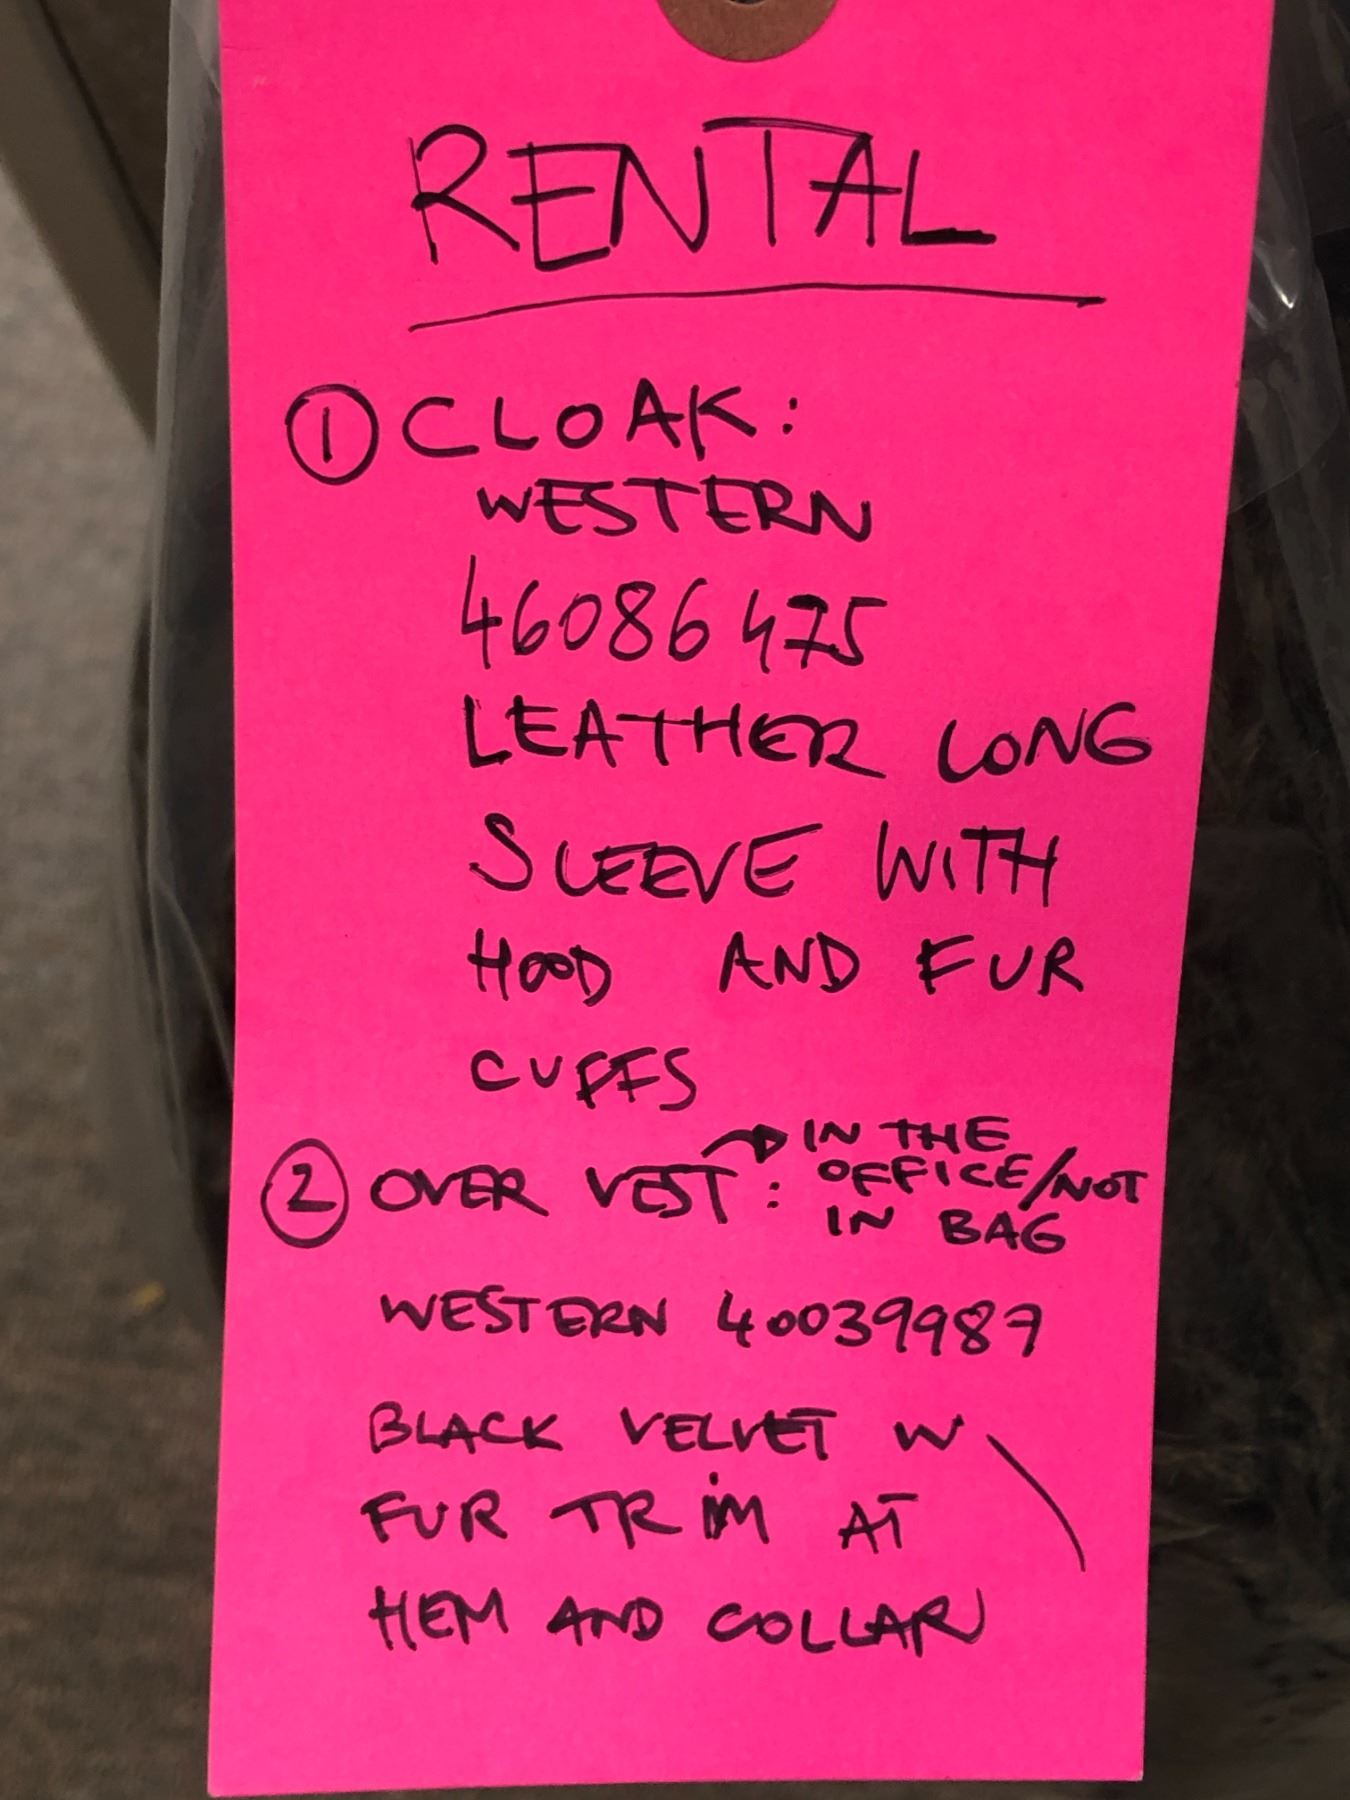 RENTAL
① CLOAK:
WESTERN
46086475
LEATHER LONG
SLEEVE WITH
HOOD AND FUR
CUFFS
② OVER VEST: → IN THE
OFFICE/NOT
IN BAG
WESTERN 40039987
BLACK VELVET W
FUR TRiM AT
HEM AND COLLAR